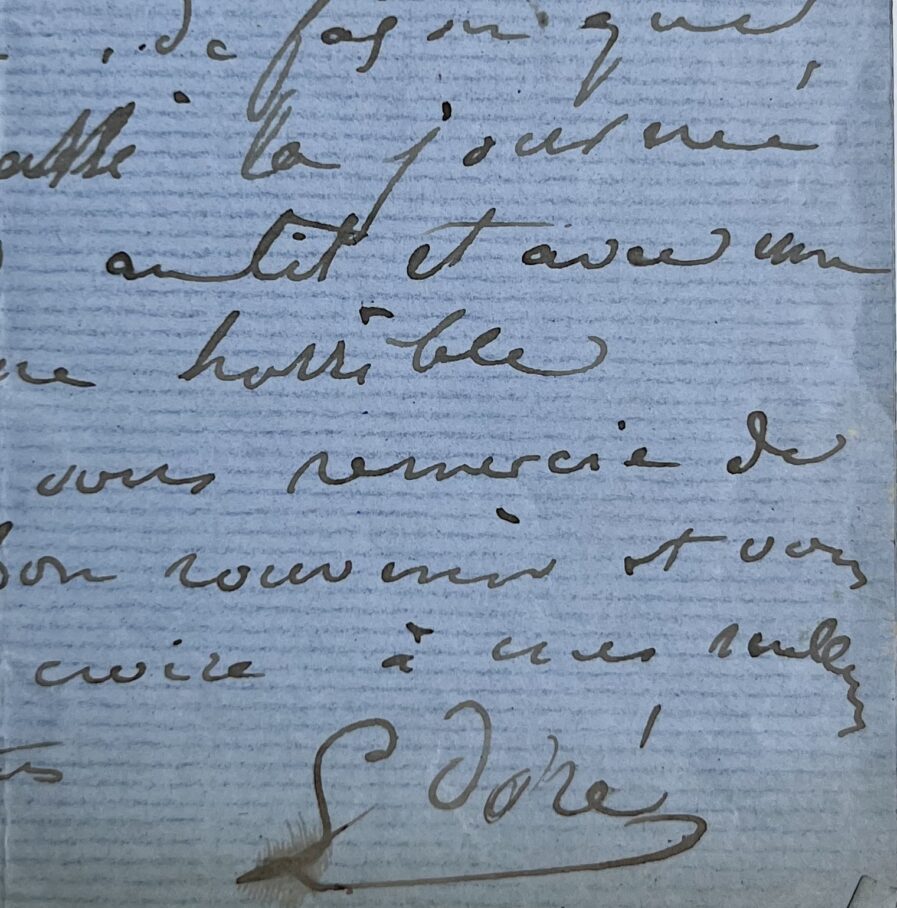 de façon que
passé la journée
au lit et avec une
horrible
vous remercie de
bon souvenir et vous
croire à mes meilleurs
G Doré